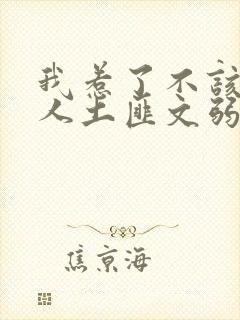 我惹了不该
人土匪文弱
焦京海